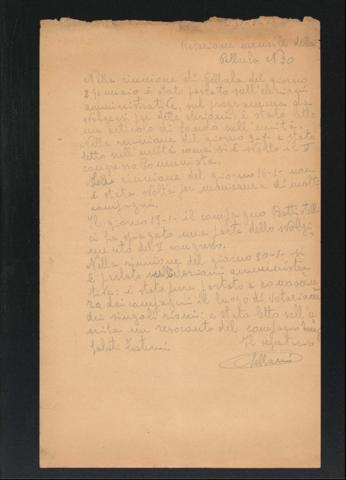 Relazione mensile della
Cellula N 30
Nella riunione di Cellula del giorno
2 gennaio è stato parlato sull'elezioni
amministrative, sul programma da
svolgersi per dette elezioni: è stato letto
un articolo di fondo sull'unità.
Nella riunione del giorno 9-1- è stato
letto sull'unità come si è svolto il V
congresso Comunista.
La riunione del giorno 16-1- non
è stata svolta per mancanza di molti
compagni.
Il giorno 19-1- il compagno
ci ha spiegato una parte dello svolgi
mento del V congresso.
Nella riunione del giorno 30-1- si
è parlato sull'elezioni amministra
tive: è stato pure portato a conoscen
za dai compagni il luogo di votazione
dei singoli rioni: è stato letto sull'u
nità un resoconto del compagno
Saluti Fraterni
Il segretario